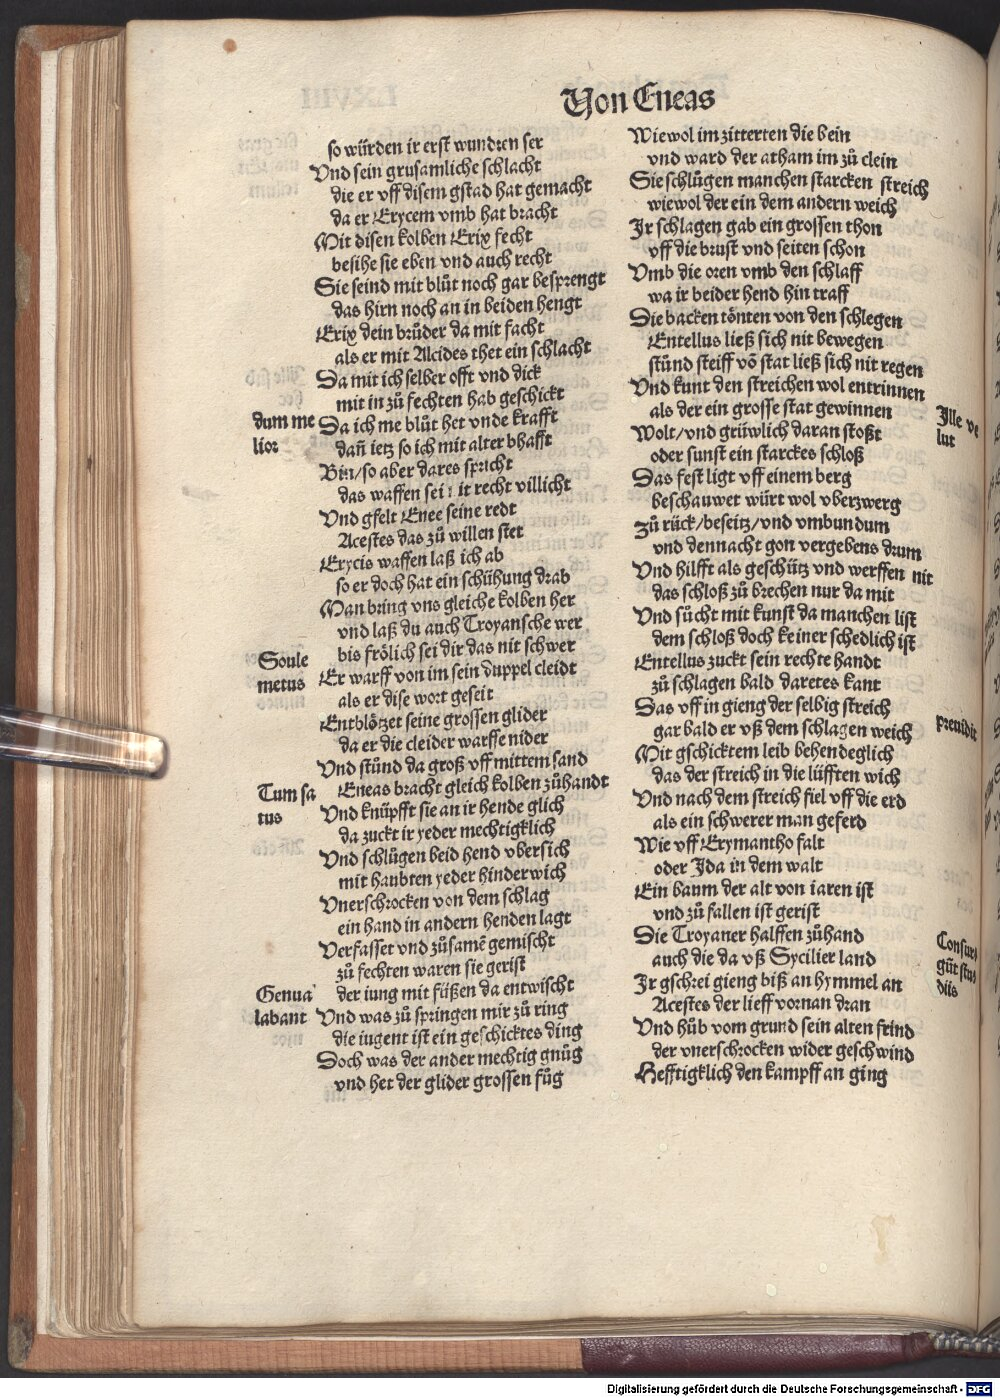 Von Eneas
so würden ir erst wundren ser
Vnd sein grusamliche schlacht
die er vff disem gstad hat gemacht
da er Erycem vmb hat bracht
Mit disen kolben Erix fecht
besihe sie eben vnd auch recht
Sie seind mit blůt noch gar besprengt
das hirn noch an in beiden hengt
Erix dein brůder da mit facht
als er mit Alcides thet ein schlacht
Da mit ich selber offt vnd dick
mit in zů fechten hab geschickt
dum me
lior
Da ich me blůt het vnde krafft
dañ ietz so ich mit alter bhafft
Bin/so aber dares spricht
das waffen sei it recht villicht
Vnd gfelt Enee seine redt
Acestes das zů willen stet
Erycis waffen laß ich ab
so er doch hat ein schühung drab
Man bring vns gleiche kolben her
vnd laß du auch Troyansche wer
bis frölich sei dir das nit schwer
Soule
metus
Er warff von im sein duppel cleidt
als er dise wort geseit
Entblötzet seine grossen glider
da er die cleider warffe nider
Vnd stůnd da groß vff mittem sand
Tum sa
tus
Eneas bracht gleich kolben zůhandt
Vnd knüpfft sie an ir hende glich
da zuckt ir yeder mechtigklich
Vnd schlůgen beid hend vbersich
mit haubten yeder hinderwich
Vnerschrocken von dem schlag
ein hand in andern henden lagt
Verfasset vnd zůsamē gemischt
zů fechten waren sie gerist
Genua
labant
der iung mit füßen da entwischt
Vnd was zů springen mir zů ring
die iugent ist ein geschicktes ding
Doch was der ander mechtig gnůg
vnd het der glider grossen fůg
Wiewol im zitterten die bein
vnd ward der atham im zů clein
Sie schlůgen manchen starcken streich
wiewol der ein dem andern weich
Ir schlagen gab ein grossen thon
vff die brust vnd seiten schon
Vmb die oren vmb den schlaff
wa ir beider hend hin traff
Die backen tönten von den schlegen
Entellus ließ sich nit bewegen
stůnd steiff vō stat ließ sich nit regen
Vnd kunt den streichen wol entrinnen
als der ein grosse stat gewinnen
Ille ve
lut
Wolt/vnd grüwlich daran stoßt
oder sunst ein starckes schloß
Das fest ligt vff einem berg
beschauwet würt wol vberzwerg
Zů rück/beseitz/vnd vmbundum
vnd dennacht gon vergebens drum
Vnd hilfft als geschütz vnd werffen nit
das schloß zů brechen nur da mit
Vnd sůcht mit kunst da manchen list
dem schloß doch keiner schedlich ist
Entellus zuckt sein rechte handt
zů schlagen bald daretes kant
Das vff in gieng der selbig streich
preuidit
gar bald er vß dem schlagen weich
Mit gschicktem leib behendeglich
das der streich in die lüfften wich
Vnd nach dem streich fiel vff die erd
als ein schwerer man geferd
Wie vff Erymantho falt
oder Ida in dem walt
Ein baum der alt von iaren ist
vnd zů fallen ist gerist
Die Troyaner halffen zůhand
Consur
gūt stu
diis
auch die da vß Sycilier land
Ir gschrei gieng biß an hymmel an
Acestes der lieff vornan dran
Vnd hůb vom grund sein alten frind
der vnerschrocken wider geschwind
Hefftigklich den kampff an ging
Digitalisierung gefördert durch die Deutsche Forschungsgemeinschaft - DFG